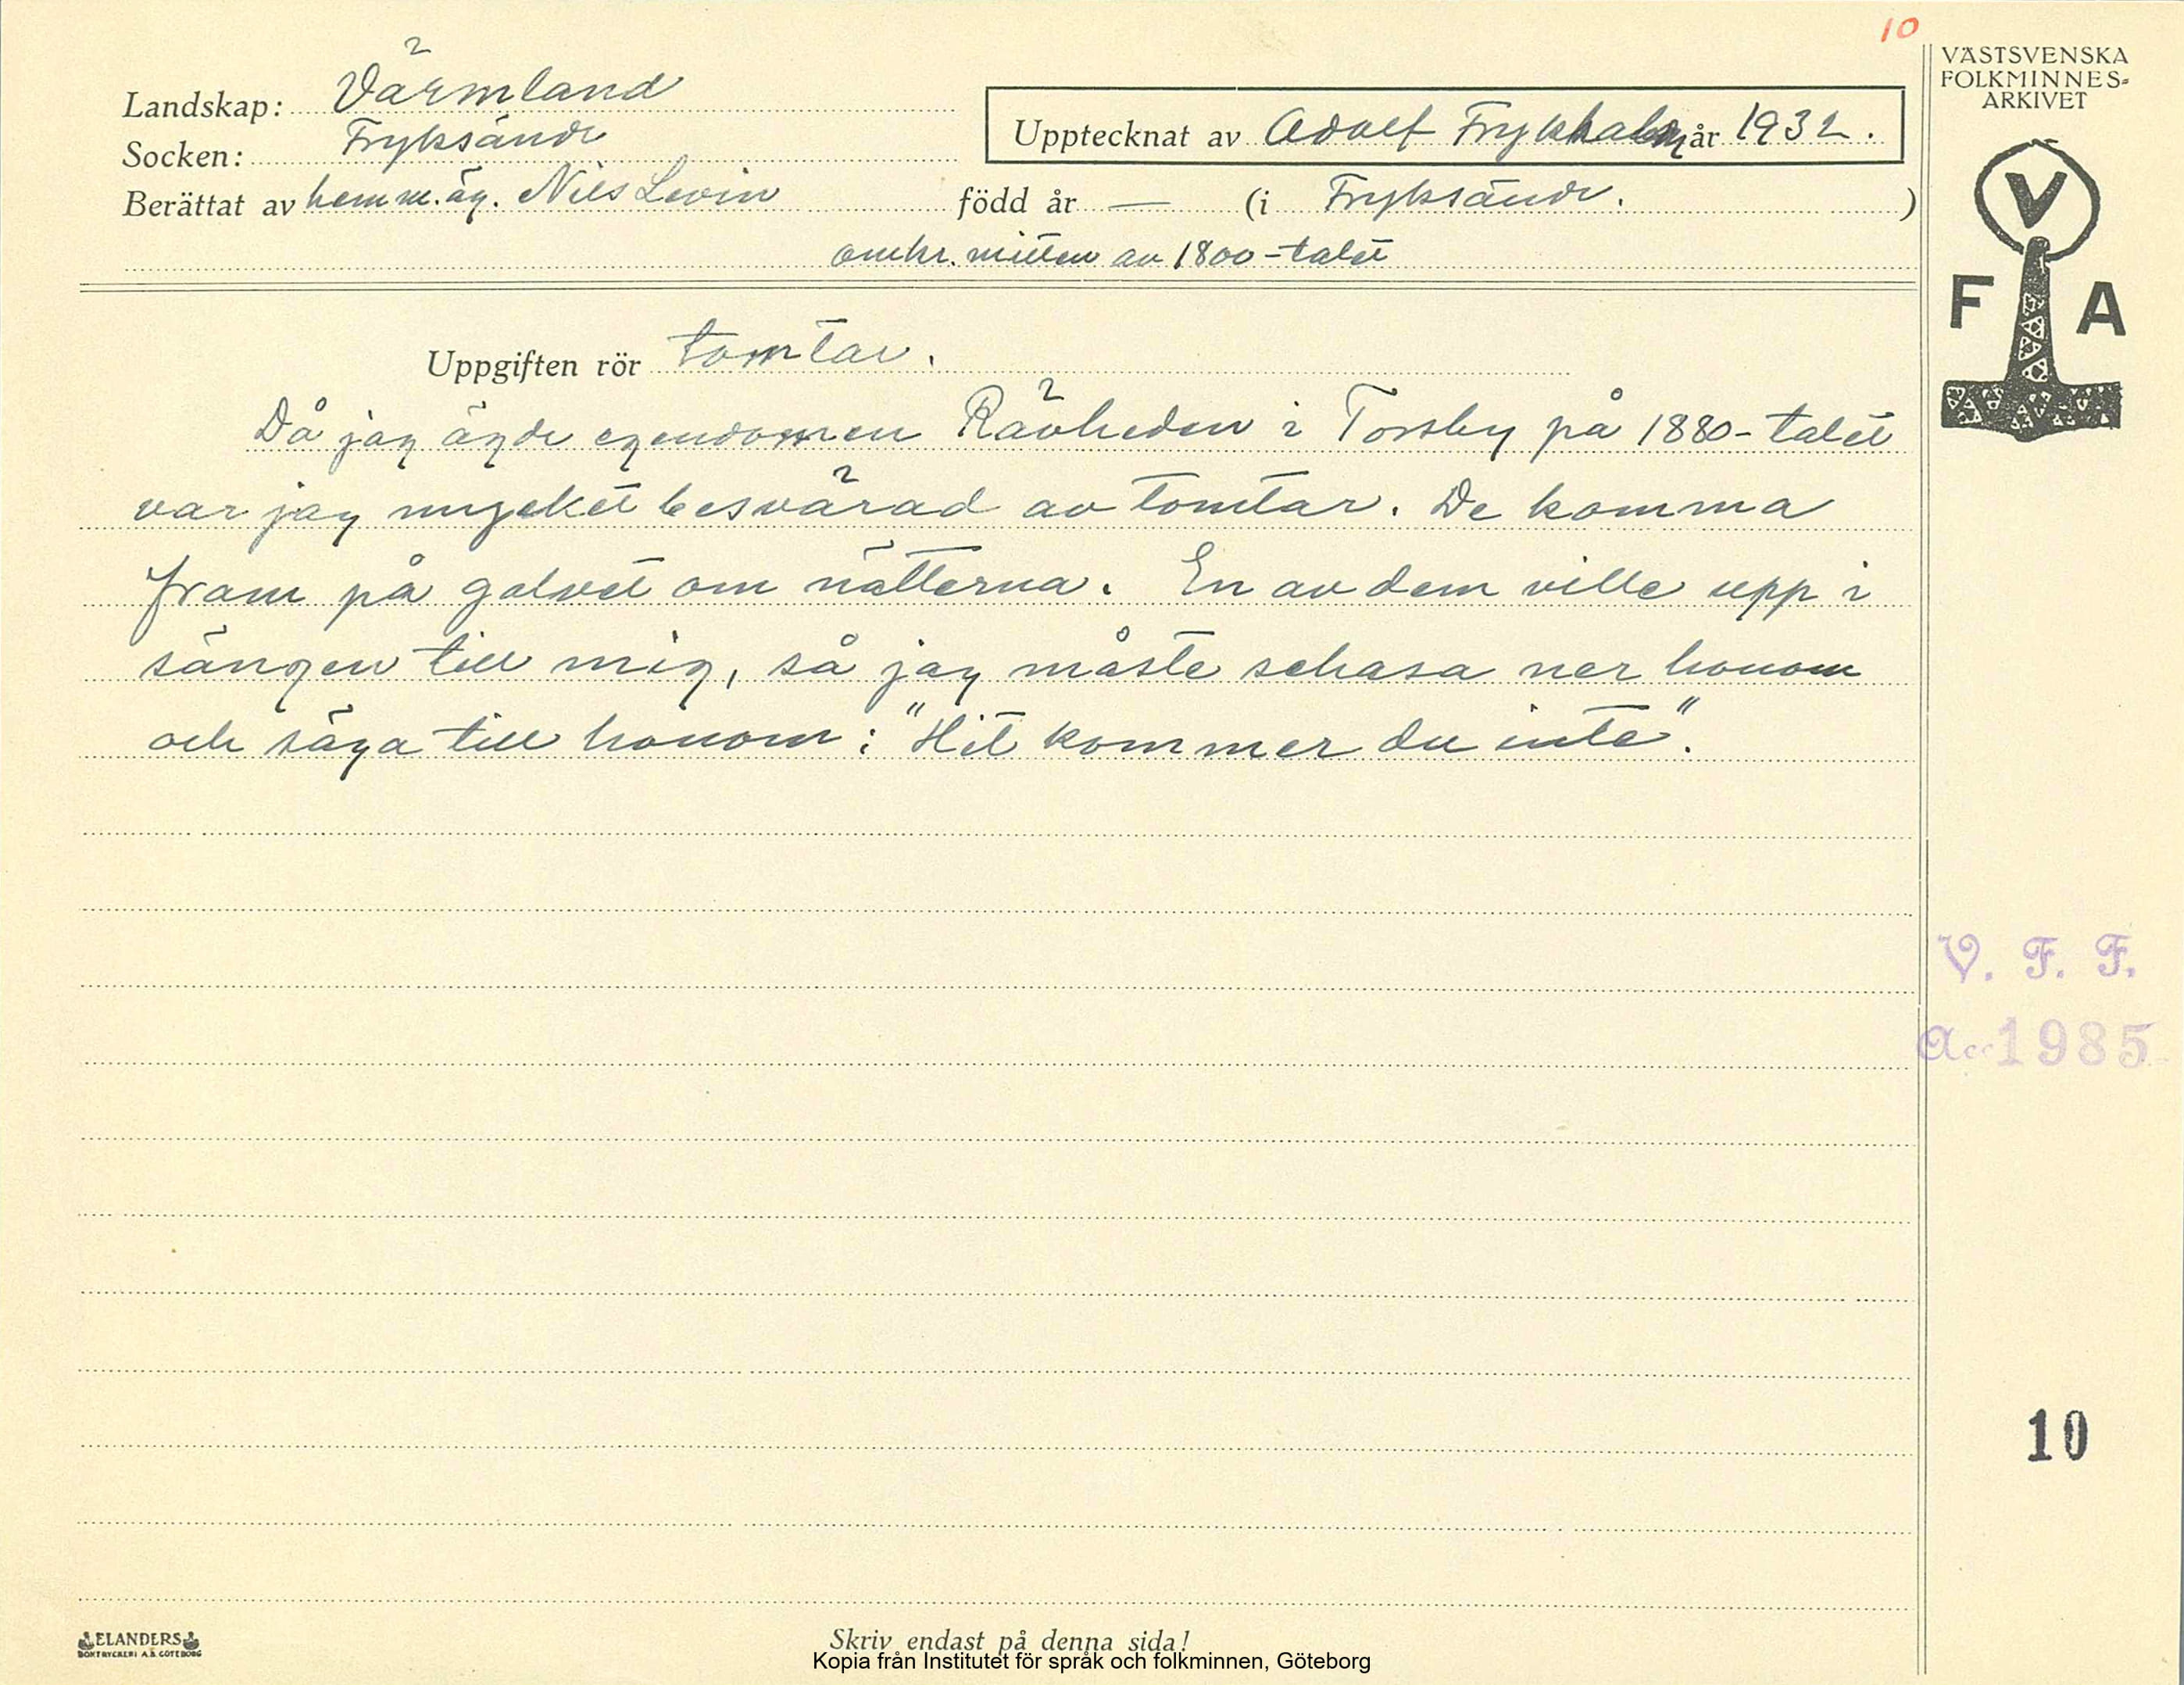 10
VÄSTSVENSKA
FOLKMINNES-
ARKIVET
V
F A
Landskap: Värmland
Socken: Fryksände
Upptecknat av Adolf Frykholm år 1932.
Berättat av hemm.äg. Nils Levin född år — (i Fryksände.)
omkr. mitten av 1800-talet
Uppgiften rör tomtar.
Då jag ägde egendomen Rävheden i Torsby på 1880-talet
var jag mycket besvärad av tomtar. De komma
fram på golvet om nätterna. En av dem ville upp i
sängen till mig, så jag måste schasa ner honom
och säga till honom: "Hit kommer du inte".
V. F. F.
Acc 1985
10
ELANDERS
BOKTRYCKERI A.B. GÖTEBORG
Skriv endast på denna sida!
Kopia från Institutet för språk och folkminnen, Göteborg